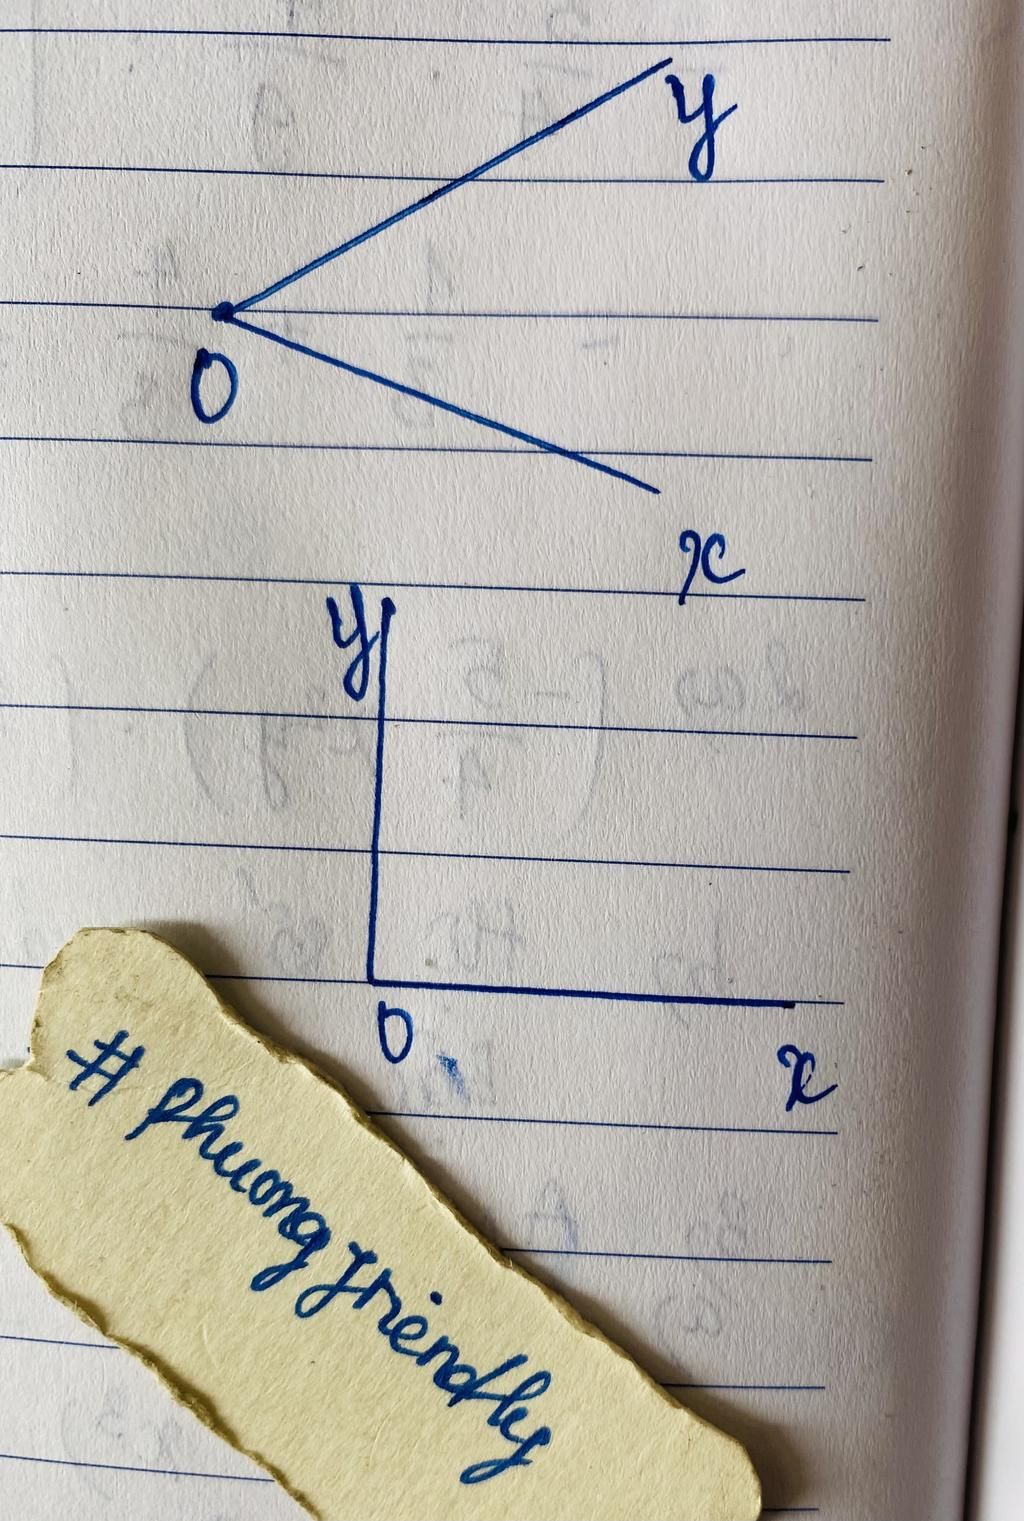 y
O
x
y
O
x
# phuong friendly